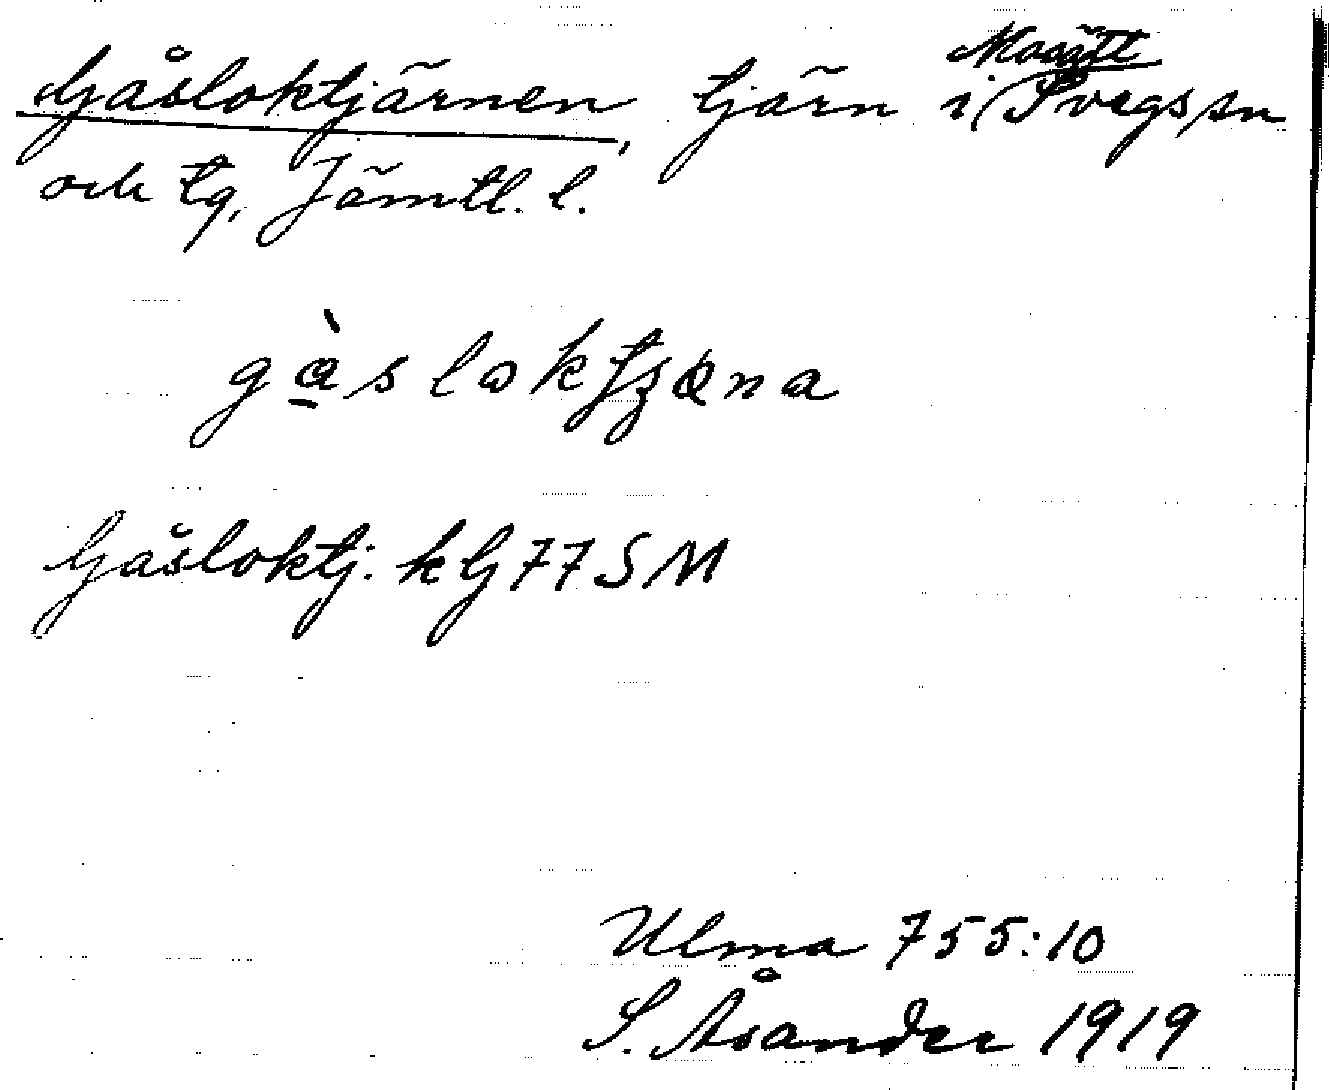 Gåsloktjärnen, tjärn i Svegs sn
och tg, Jämtl. l.
Gåsloktj. kG77SM
Ulma 755:10
S. Åsander 1919